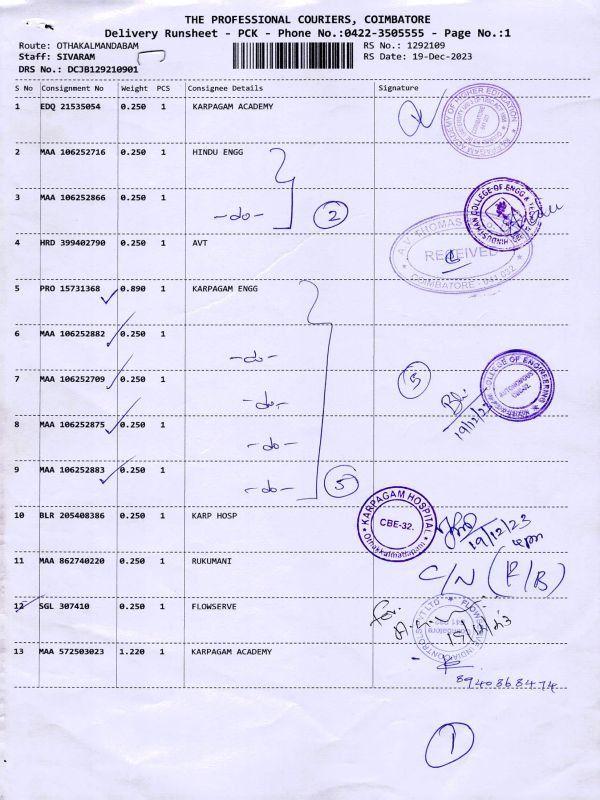 THE PROFESSIONAL COURIERS, COIMBATORE
Delivery Runsheet - PCK - Phone No.:0422-3505555 - Page No.:1
Route: OTHAKALMANDABAM
RS No.: 1292109
Staff: SIVARAM
RS Date: 19-Dec-2023
DRS No.: DCJB129210901
S No Consignment No Weight PCS Consignee Details Signature
1 EDQ 21535054 0.250 1 KARPAGAM ACADEMY
KARPAGAM ACADEMY OF HIGHER EDUCATION
2 MAA 106252716 0.250 1 HINDU ENGG
3 MAA 106252866 0.250 1
-do- 2
HINDUSTHAN COLLEGE OF ENGG &
4 HRD 399402790 0.250 1 AVT
A.V. THOMAS
RECEIVED
COIMBATORE - 641 032
5 PRO 15731368 0.890 1 KARPAGAM ENGG
6 MAA 106252882 0.250 1
-do-
7 MAA 106252709 0.250 1
-do-
5
COLLEGE OF ENGINEERING
AUTONOMOUS
CBE-32.
19/12/23
8 MAA 106252875 0.250 1
-do-
9 MAA 106252883 0.250 1
-do- 5
10 BLR 205408386 0.250 1 KARP HOSP
KARPAGAM HOSPITAL
CBE-32.
Othakkalmattapam
19/12/23
11 MAA 862740220 0.250 1 RUKUMANI
C/N (R/B)
12 SGL 307410 0.250 1 FLOWSERVE
for.
19/12/23
13 MAA 572503023 1.220 1 KARPAGAM ACADEMY
8940868474
1